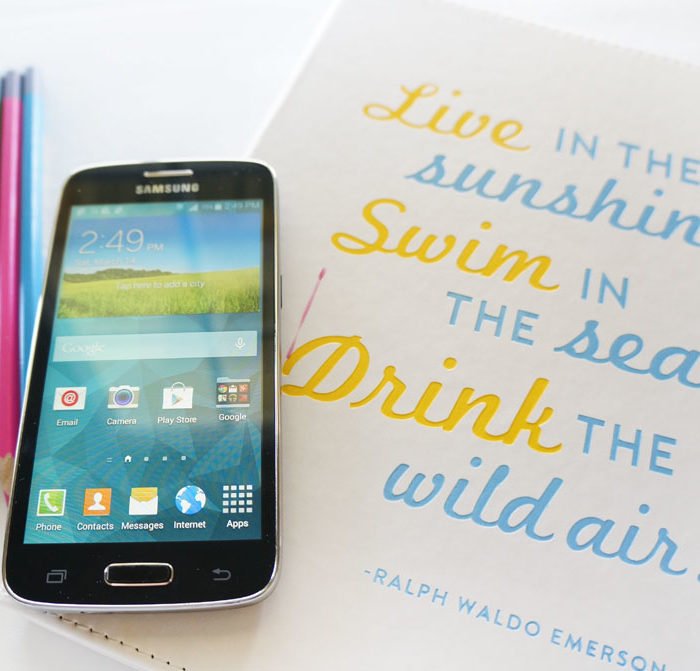 SAMSUNG
2:49 PM
2:49 PM
Sat, March 14
Tap here to add a city
Google
Email
Camera
Play Store
Google
Phone
Contacts
Messages
Internet
Apps
Live IN THE
sunshin
Swim IN
THE sea
Drink THE
wild air.
-RALPH WALDO EMERSON